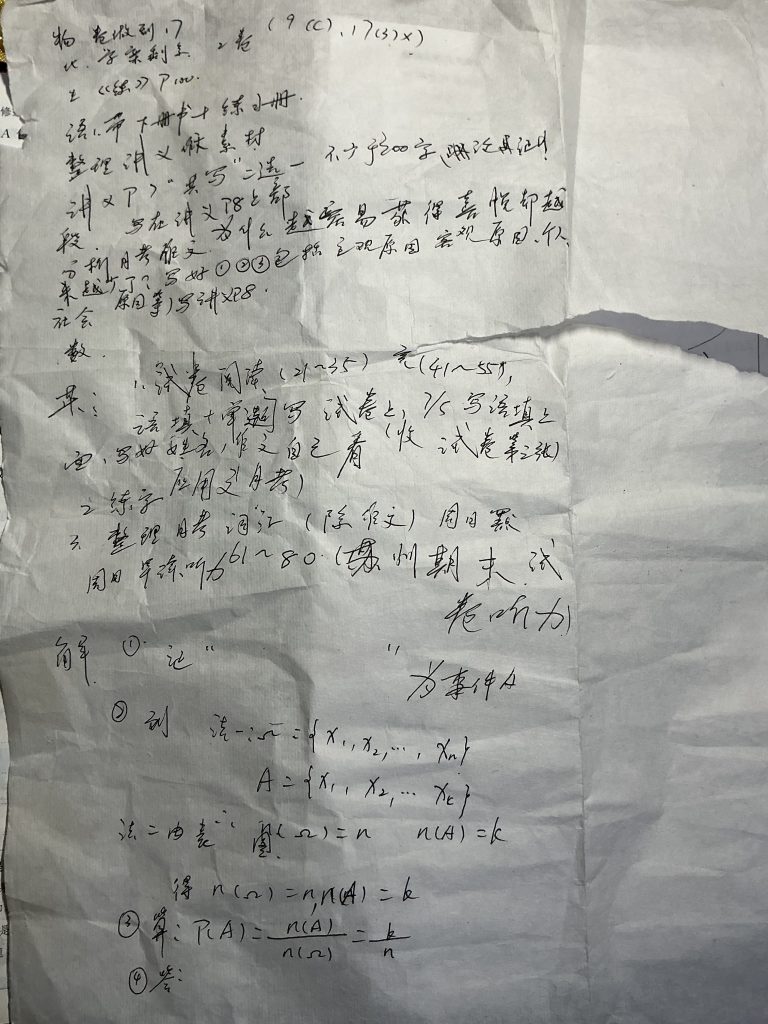 物 卷做到17 2卷 (9(C), 17(3)×)
化 学案到
生 《练》P100.
语1. 带下册书+练习册.
整理讲义 素材
讲义P7 "共写"二选一 不少于200字,
段. 写在讲义P8上部
分析月考作文 为什么越容易获得喜悦却越
来越少了?写好①②③包括主观原因 客观原因.个人
社会原因等)写讲义P8.
数.
英: 1. 试卷阅读 (21~35) 完(41~55),
语填+单选 写试卷上, 7/5 写语填上
面, 写好姓名, 作文自己看 (收试卷第三张)
应用文(月考)
2. 练字
3. 整理月考词汇 (除作文) 周日
周日早读听力61~80. (州期末试
卷听力)
解 ① 记" "
为事件A
② 列 法一: Ω={x₁, x₂, ..., xₙ}
A={x₁, x₂, ... xₖ}
法二由表、图 n(Ω)=n n(A)=k
得 n(Ω)=n, n(A)=k
③ 算: P(A)=n(A)/n(Ω)=k/n
④ 答: